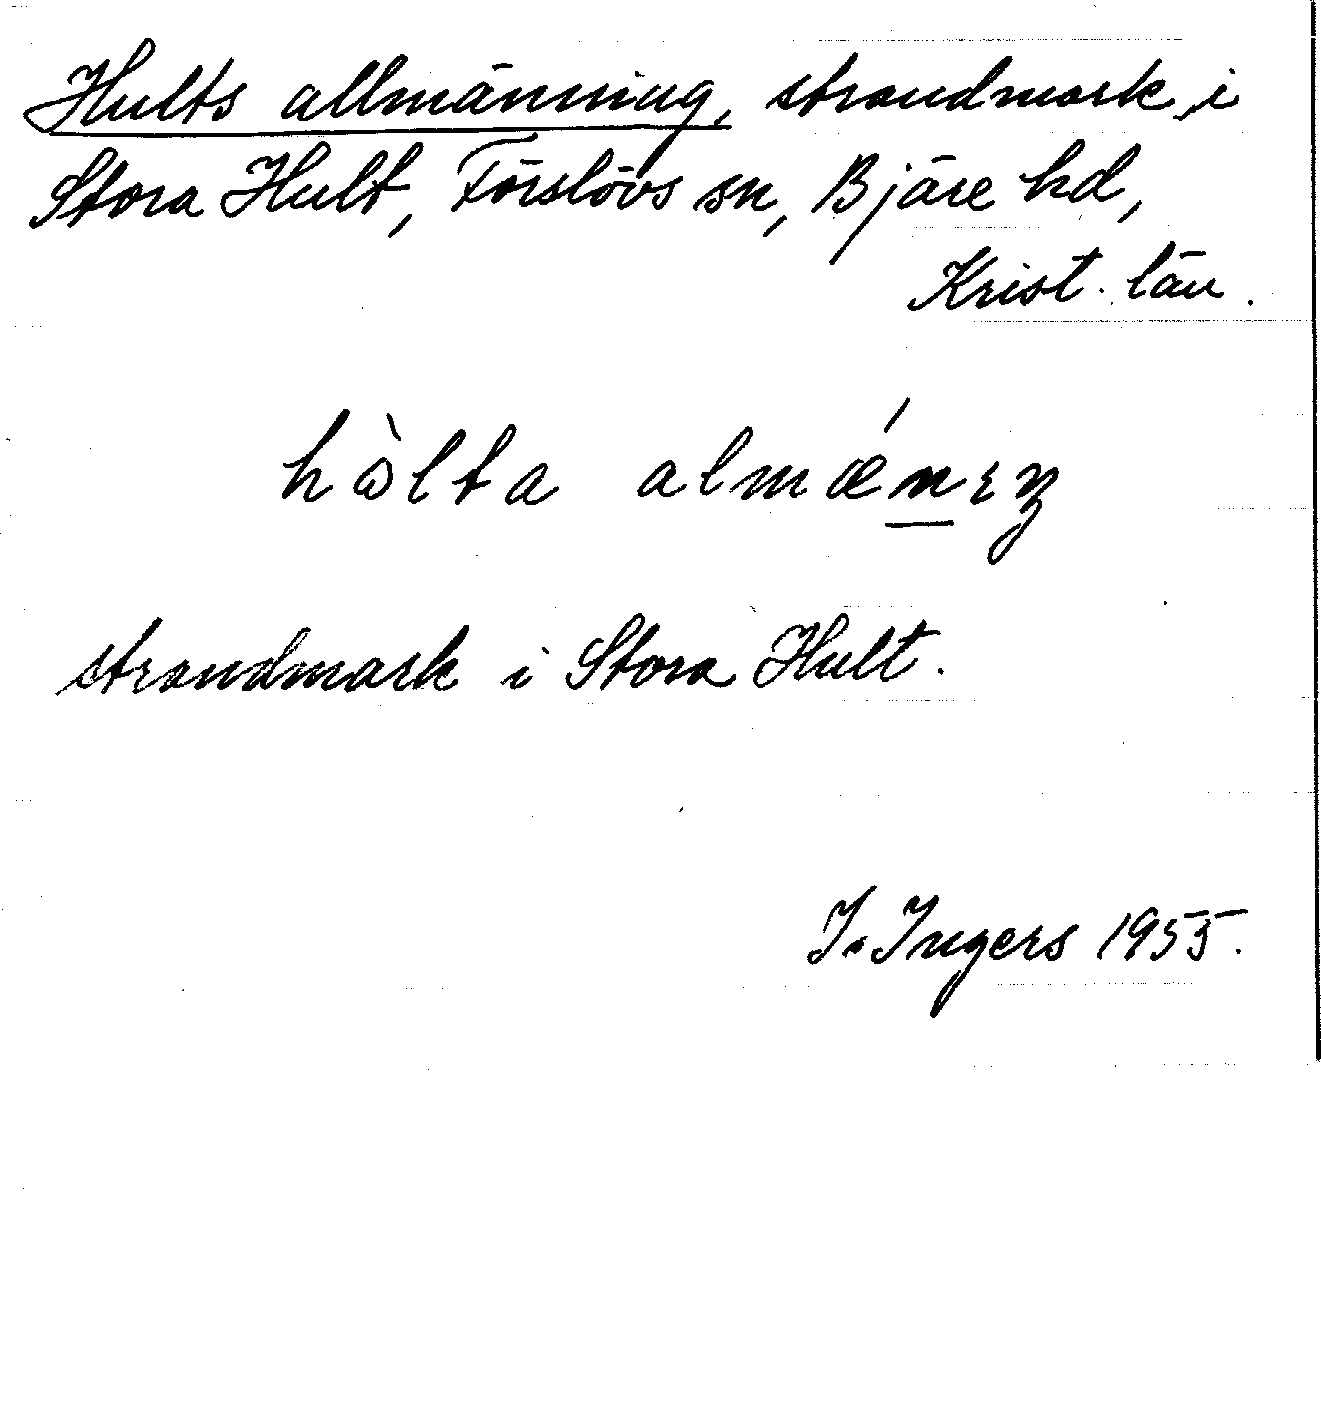 Hults allmänning, strandmark i
Stora Hult, Förslövs sn, Bjäre hd,
Krist. län.
hòlta almǽnıŋ
strandmark i Stora Hult.
I. Ingers 1955.